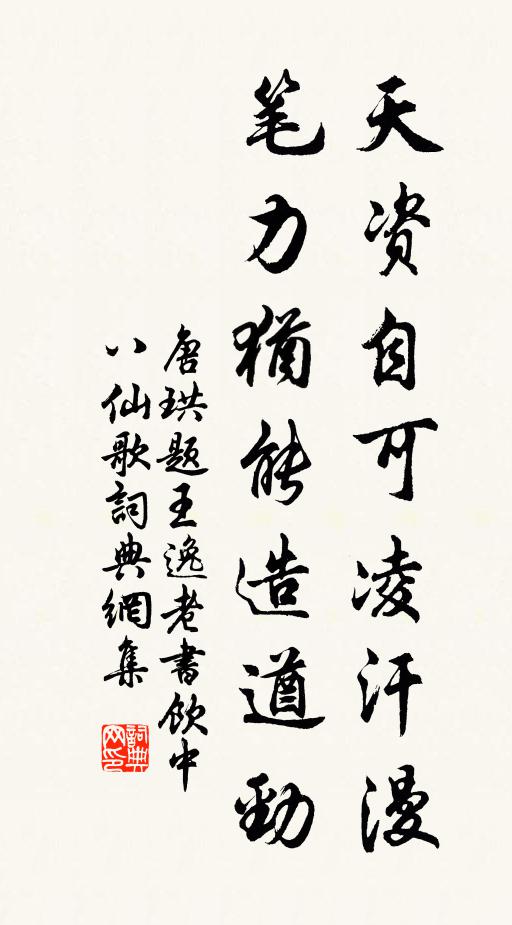 天資自可凌汗漫
笔力猶能造遒勁
唐珙题王逸老書飲中
八仙歌詞典網集
詞典
网印